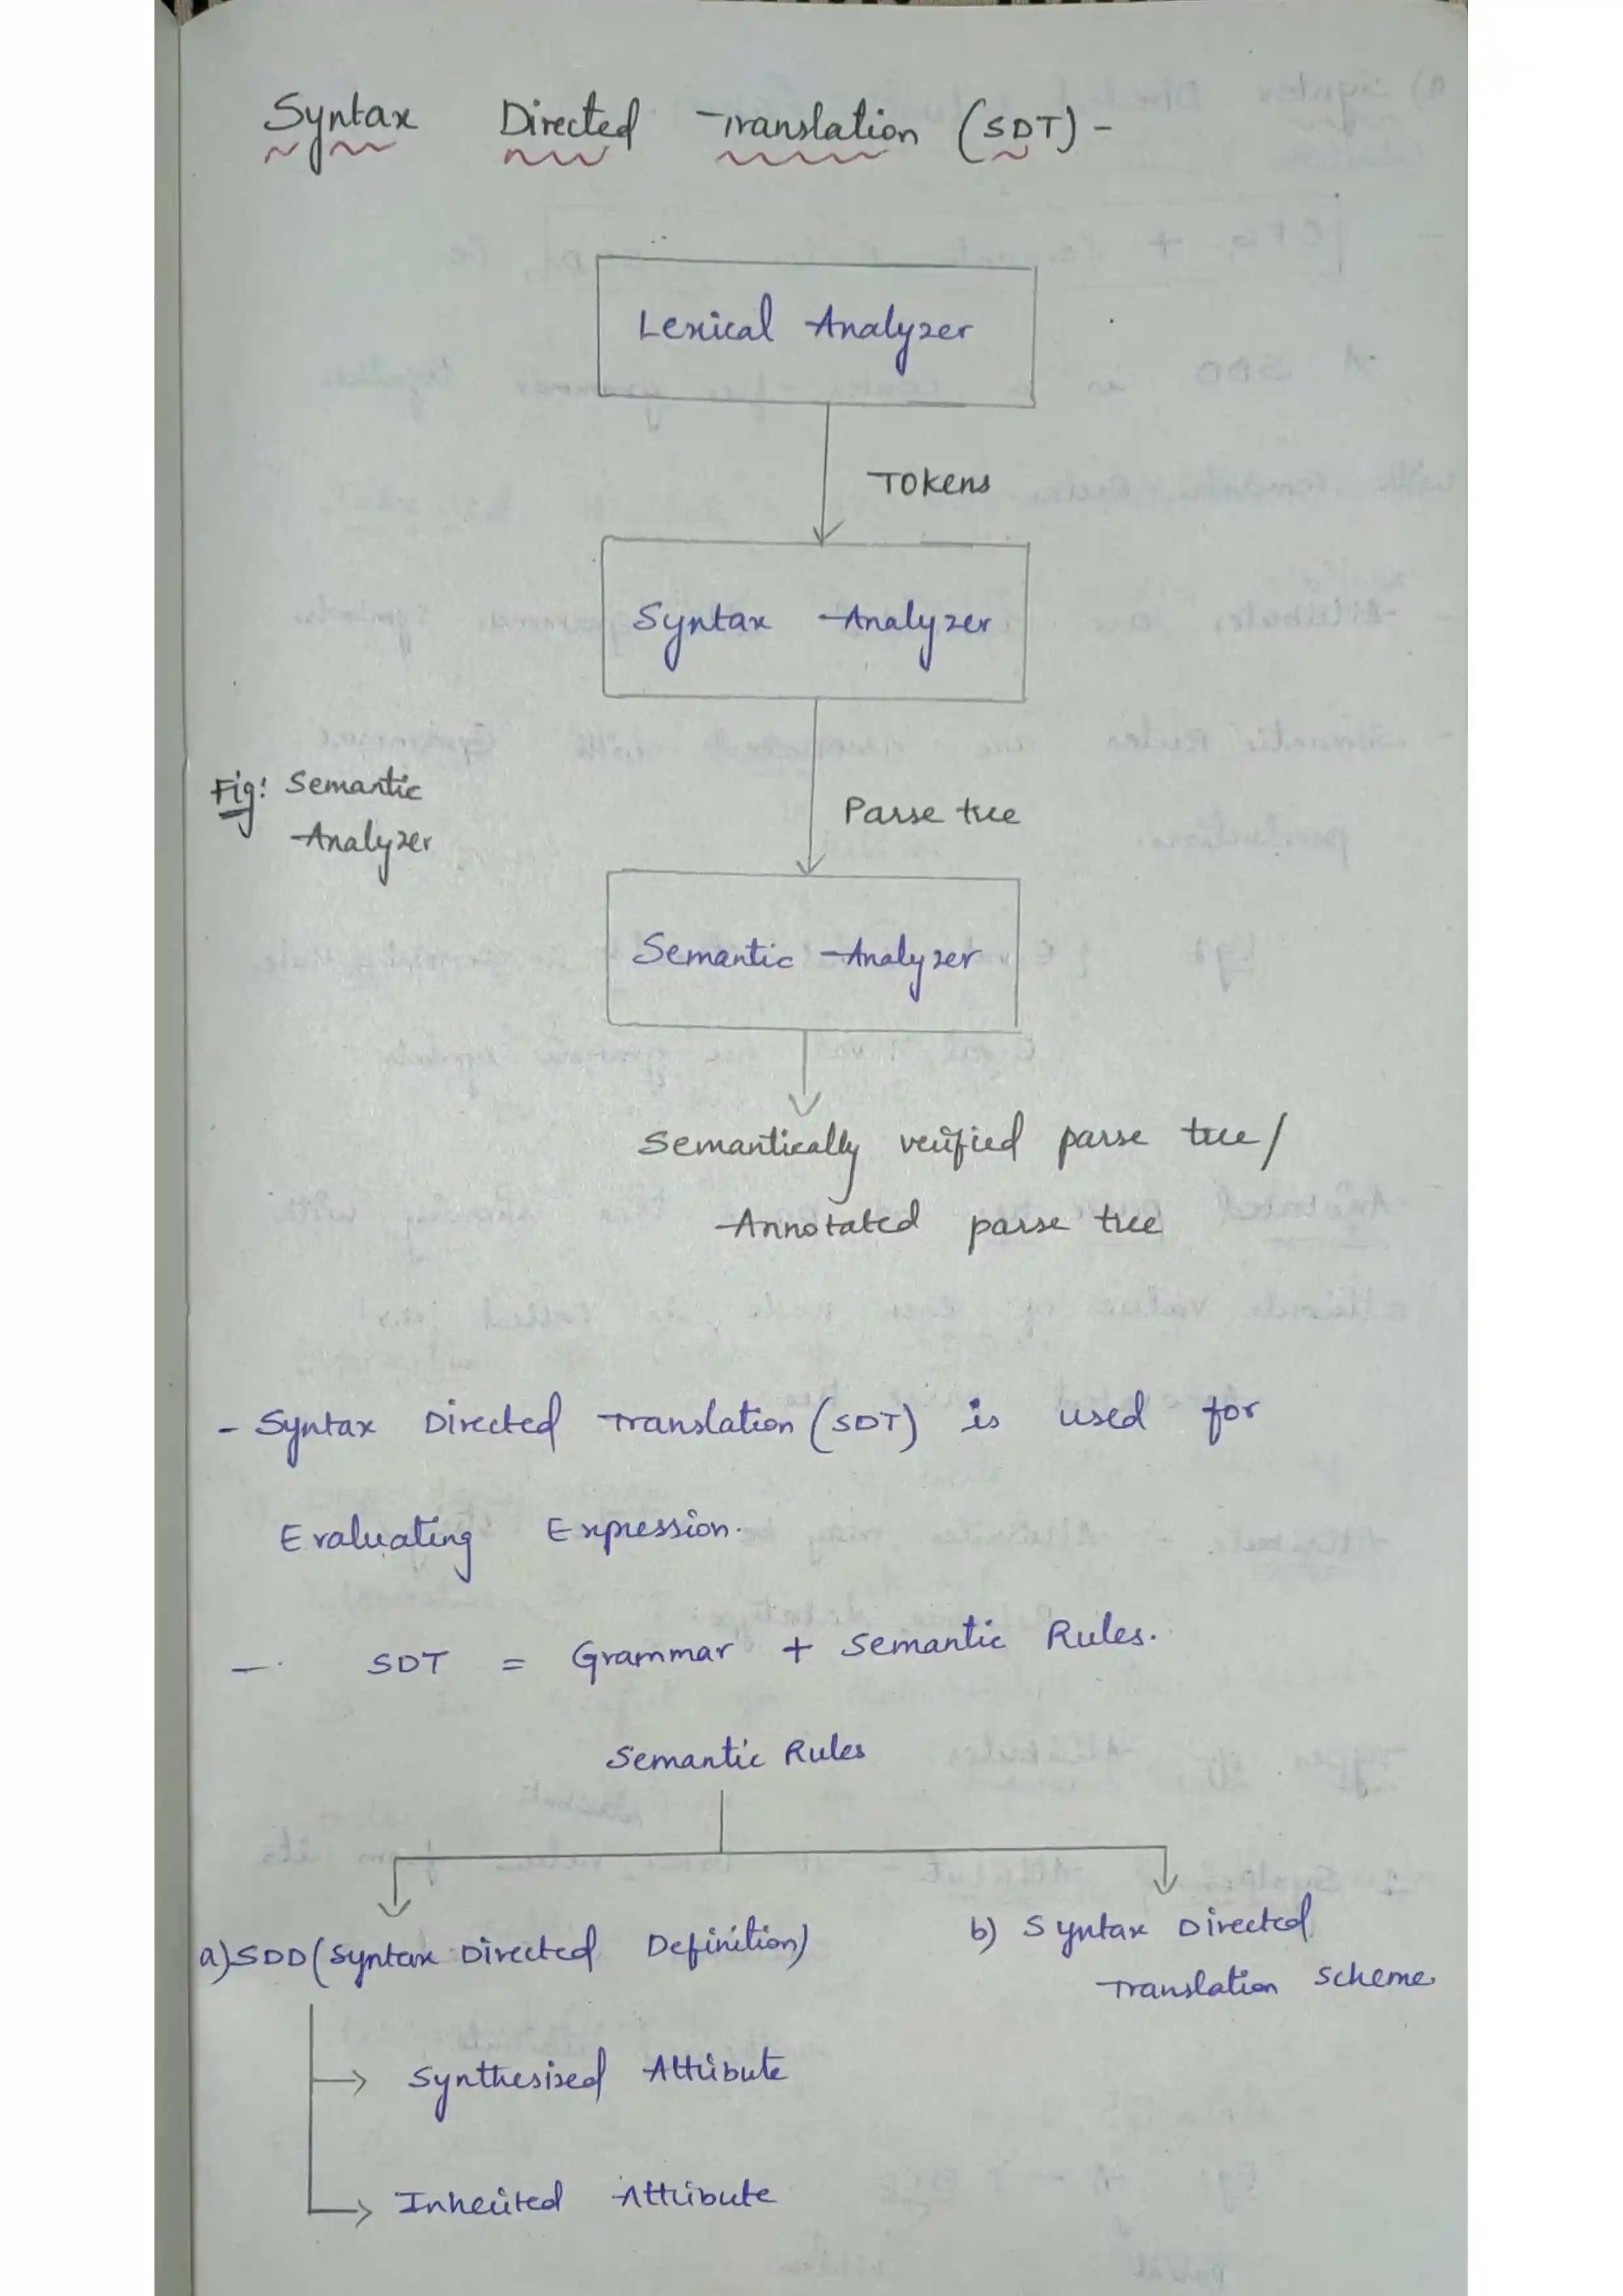 Syntax Directed Translation (SDT) -
Lexical Analyzer
Tokens
Syntax Analyzer
Parse tree
Fig: Semantic
Analyzer
Semantic Analyzer
Semantically verified parse tree/
Annotated parse tree
- Syntax Directed Translation (SDT) is used for
Evaluating Expression.
- SDT = Grammar + Semantic Rules.
Semantic Rules
a) SDD (Syntax Directed Definition)
b) Syntax Directed
Translation Scheme
Synthesized Attribute
Inherited Attribute